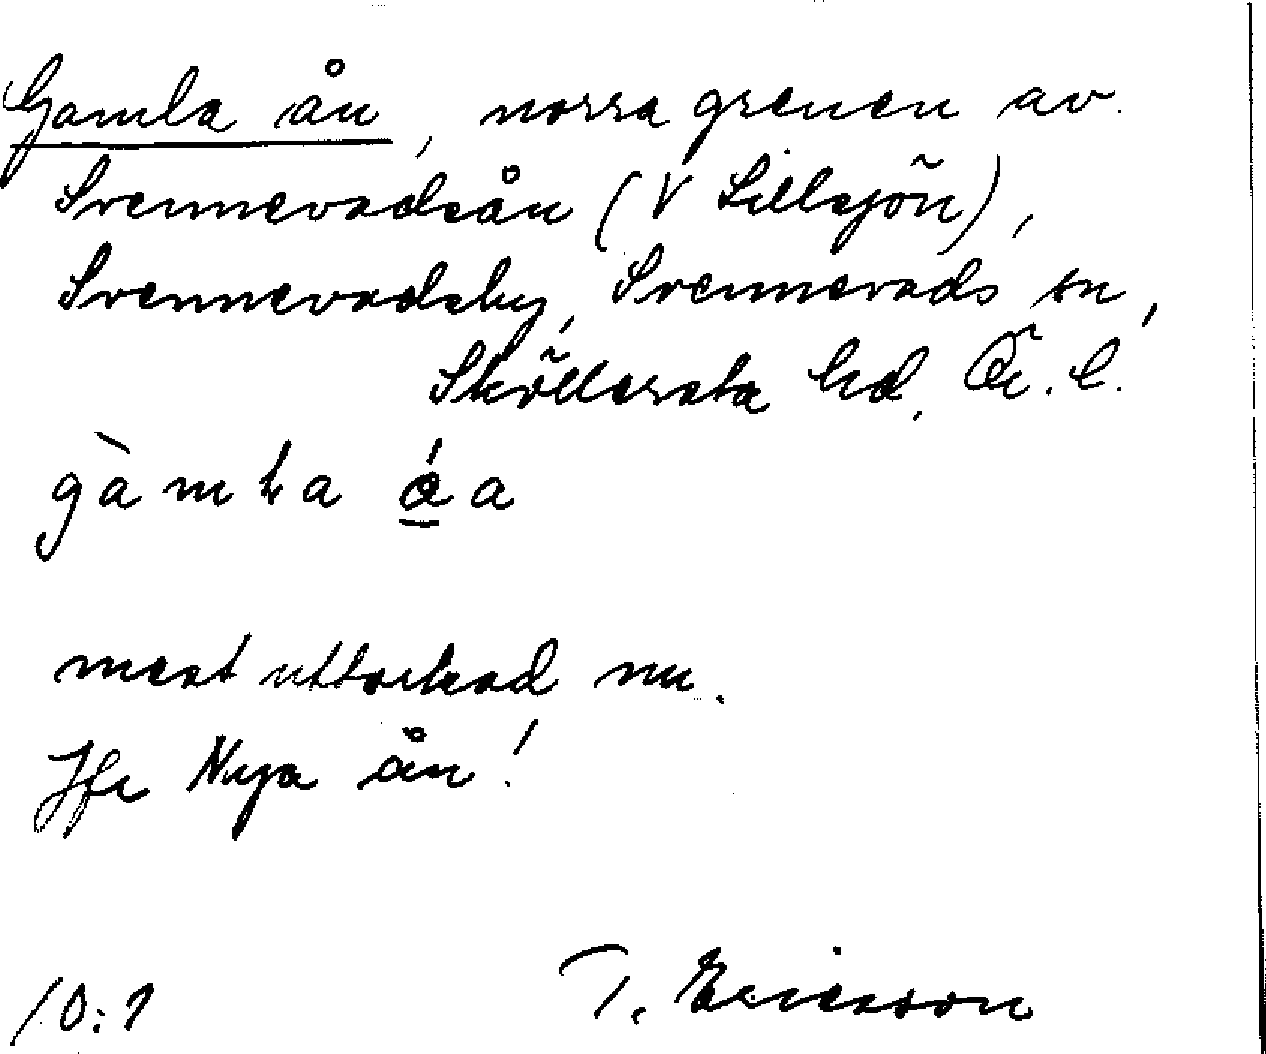 Gamla ån, norra grenen av
Svennevadsån (V Sillsjön),
Svennevadsby, Svennevads sn,
Sköllersta hd, Ör. l.
gàmla á̱a
mest uttorkad nu.
Jfr Nya ån!
10:1
T. Ericsson